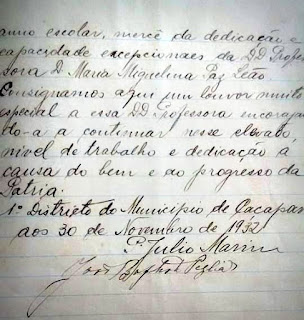 anno escolar, mercê da dedicação e
capacidade excepcionaes da DD Profes
sora D. Maria Miguelina Paz Leão.
Consignamos aqui um louvor muito
especial a essa DD Professora encorajan
do-a a continuar nesse elevado
nivel de trabalho e dedicação á
causa do bem e ao progresso da
Patria.
1º Districto do Municipio de Caçapava
aos 30 de Novembro de 1932
Julio Marin
João Baptista